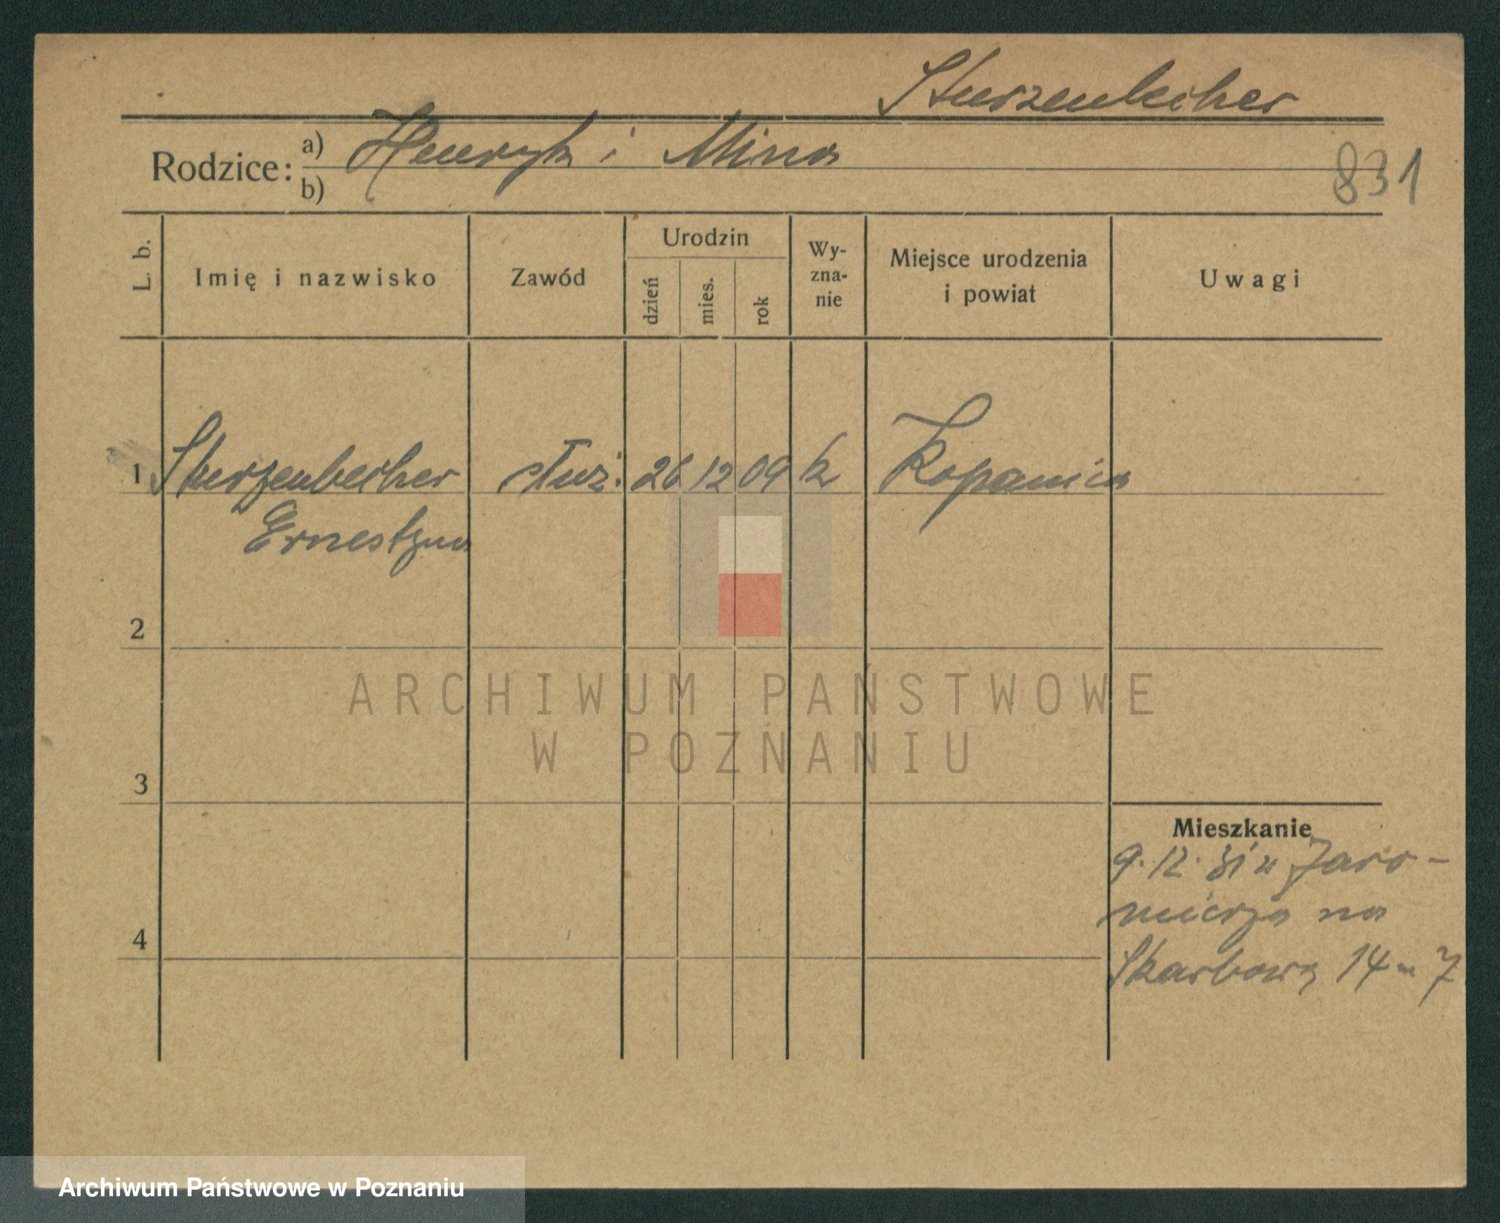 Sturzenbecher
Rodzice: a) Henryk i Mina
b)
831
L. b.
Imię i nazwisko
Zawód
Urodzin
dzień
mies.
rok
Wy-
zna-
nie
Miejsce urodzenia
i powiat
Uwagi
1 Sturzenbecher służ. 26 12 09 k Kopanica
Ernestyna
2
3
4
ARCHIWUM PAŃSTWOWE
W POZNANIU
Mieszkanie
9.12.31 z Jaro-
mierza na
Skarbową 14 m 7
Archiwum Państwowe w Poznaniu